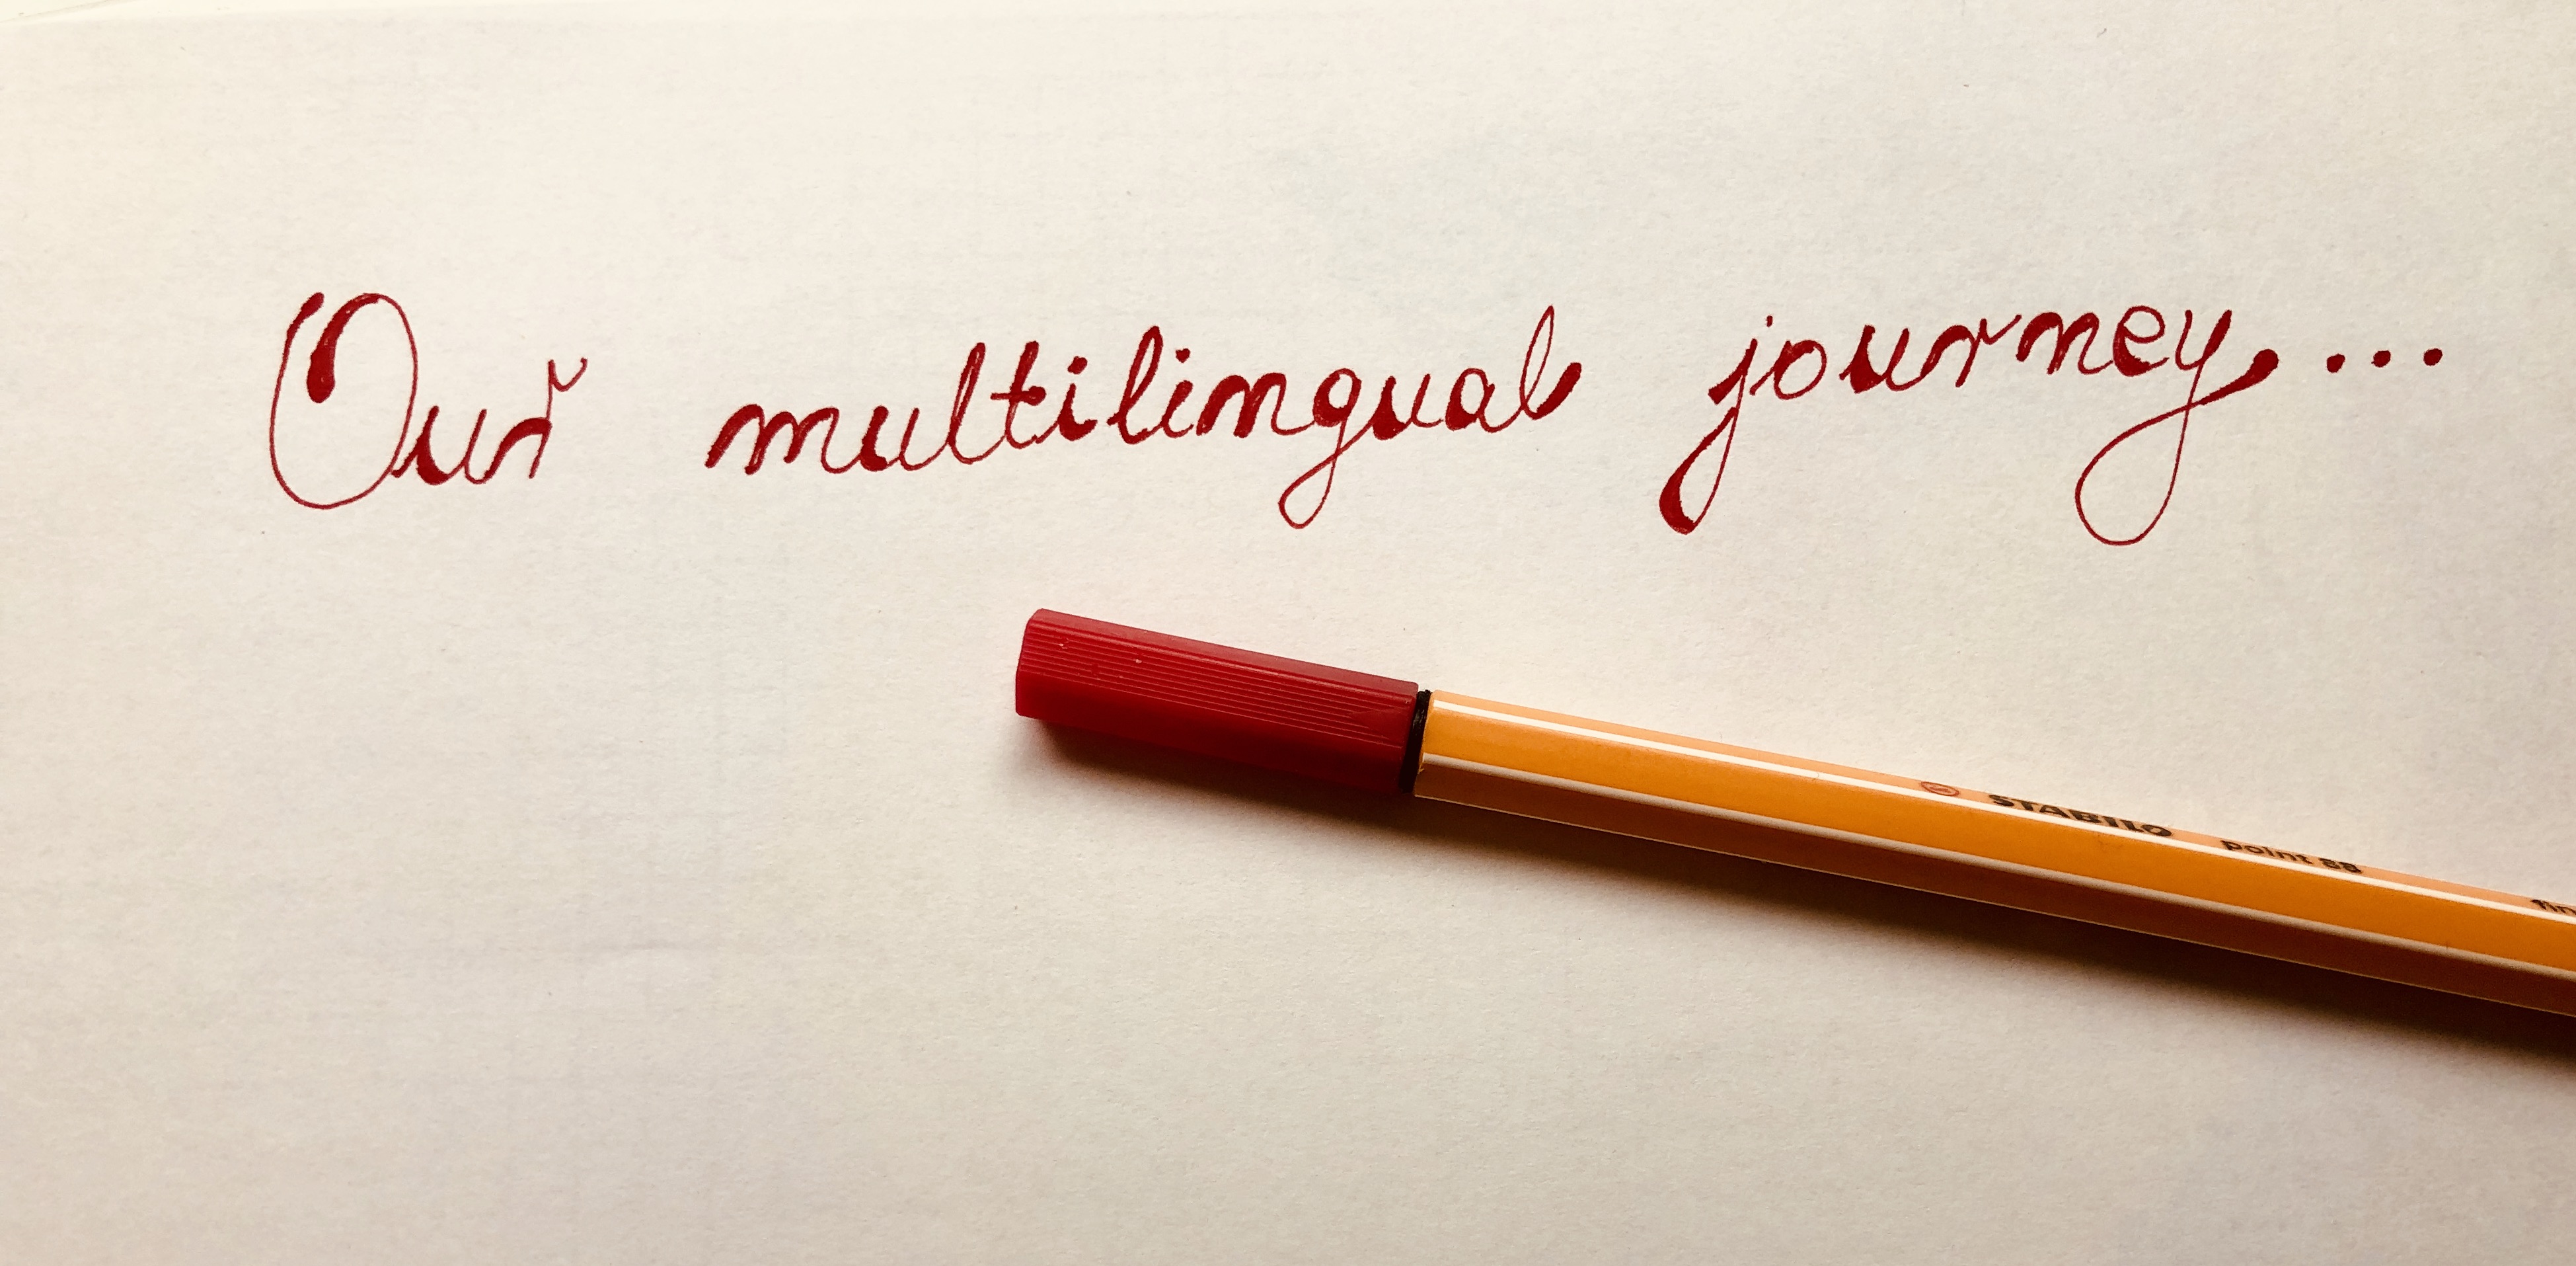 Our multilingual journey...
STABILO point 88